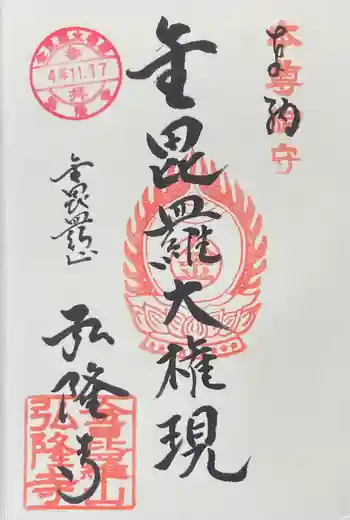 奉納
本尊御守
金毘羅大権現
金毘羅山
弘隆寺
4年11.17
参拝
金毘羅山
弘隆寺